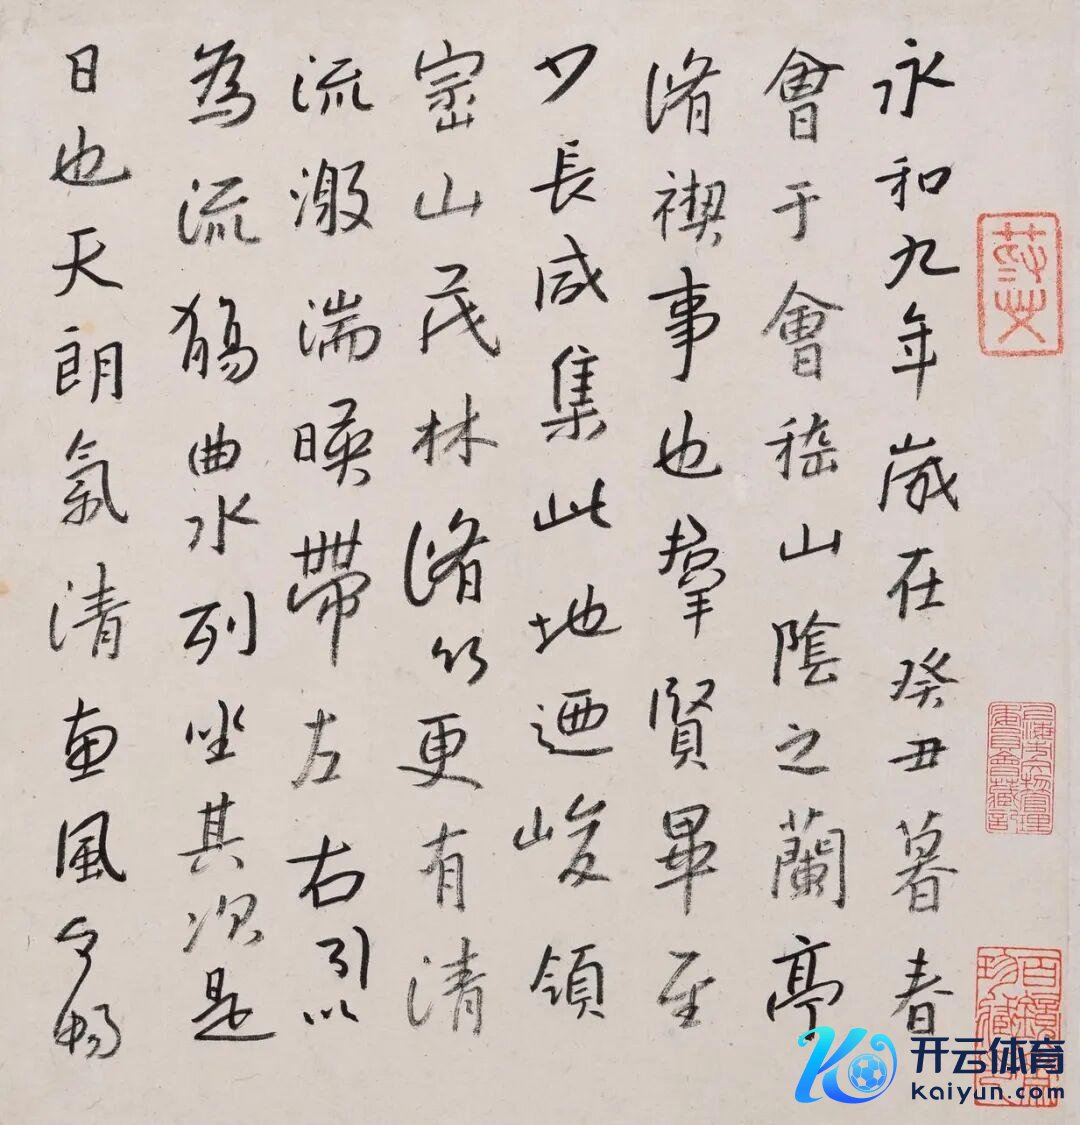 永和九年歲在癸丑暮春
會于會稽山陰之蘭亭
脩禊事也羣賢畢至
少長咸集此地迺峻領
崇山茂林脩竹更有清
流激湍暎帶左右引以
為流觴曲水列坐其次是
日也天朗氣清惠風和暢
开云体育
Kaiyun.com